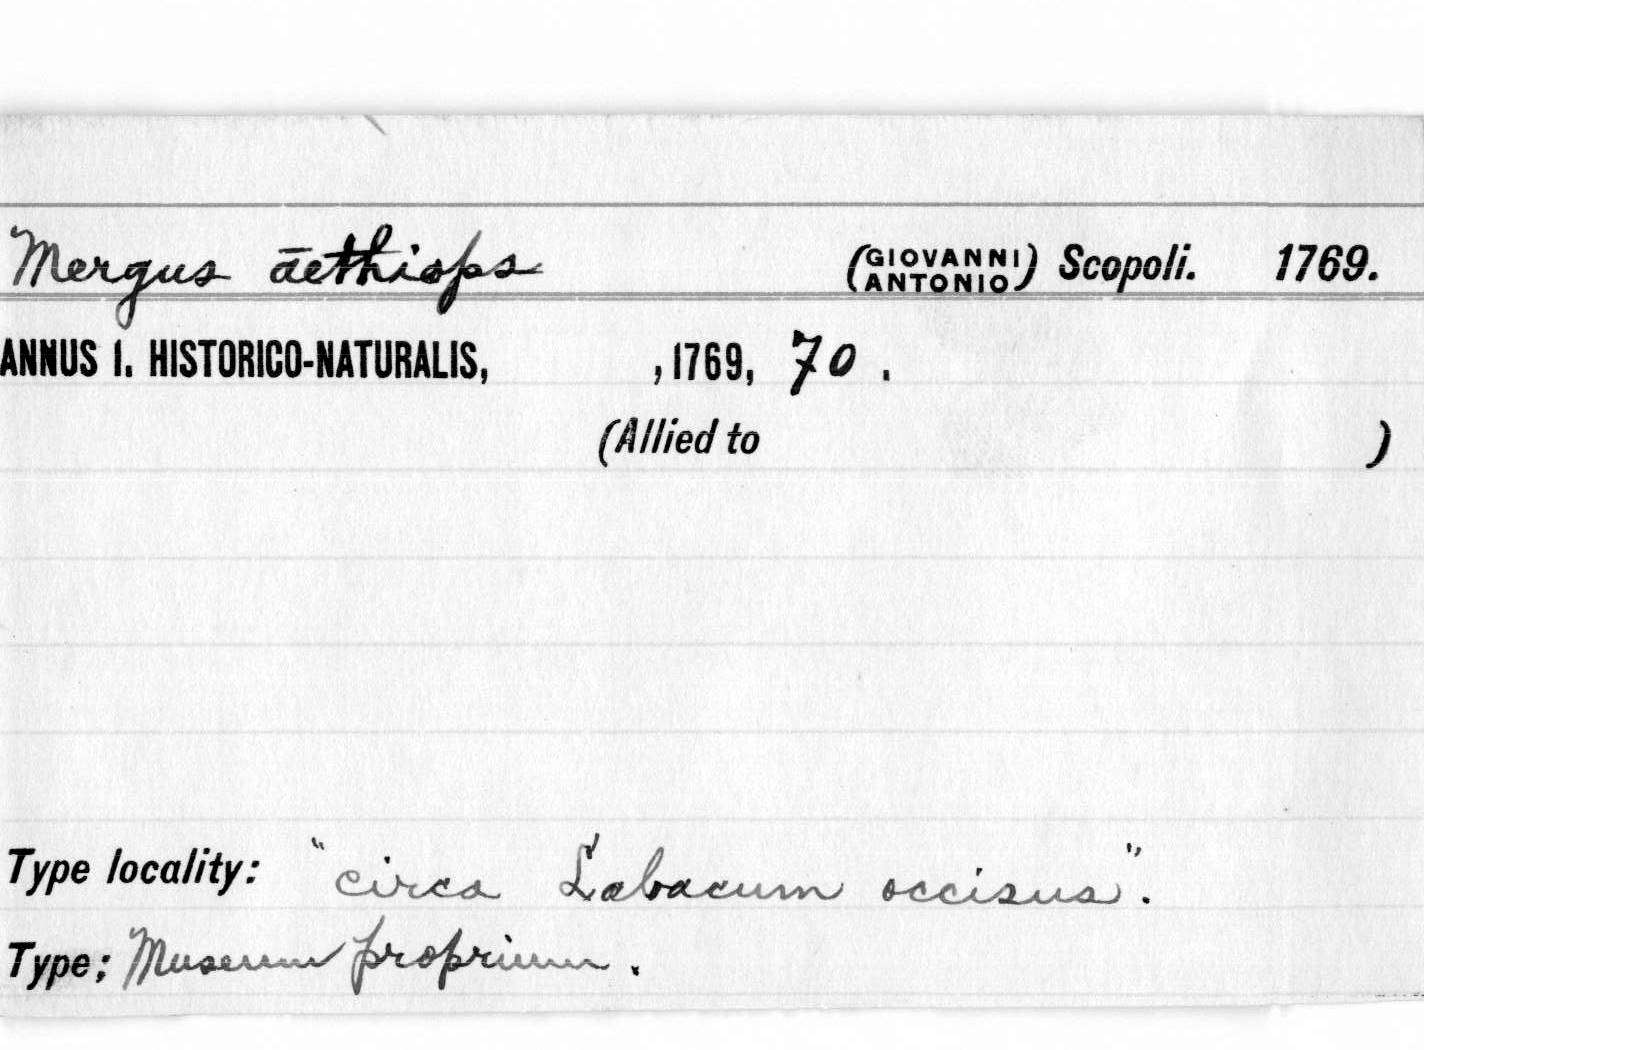 Mergus aethiops (GIOVANNI ANTONIO) Scopoli. 1769.
ANNUS I. HISTORICO-NATURALIS, , 1769, 70.
(Allied to )
Type locality: "circa Labacum occisus".
Type; Museum proprium.